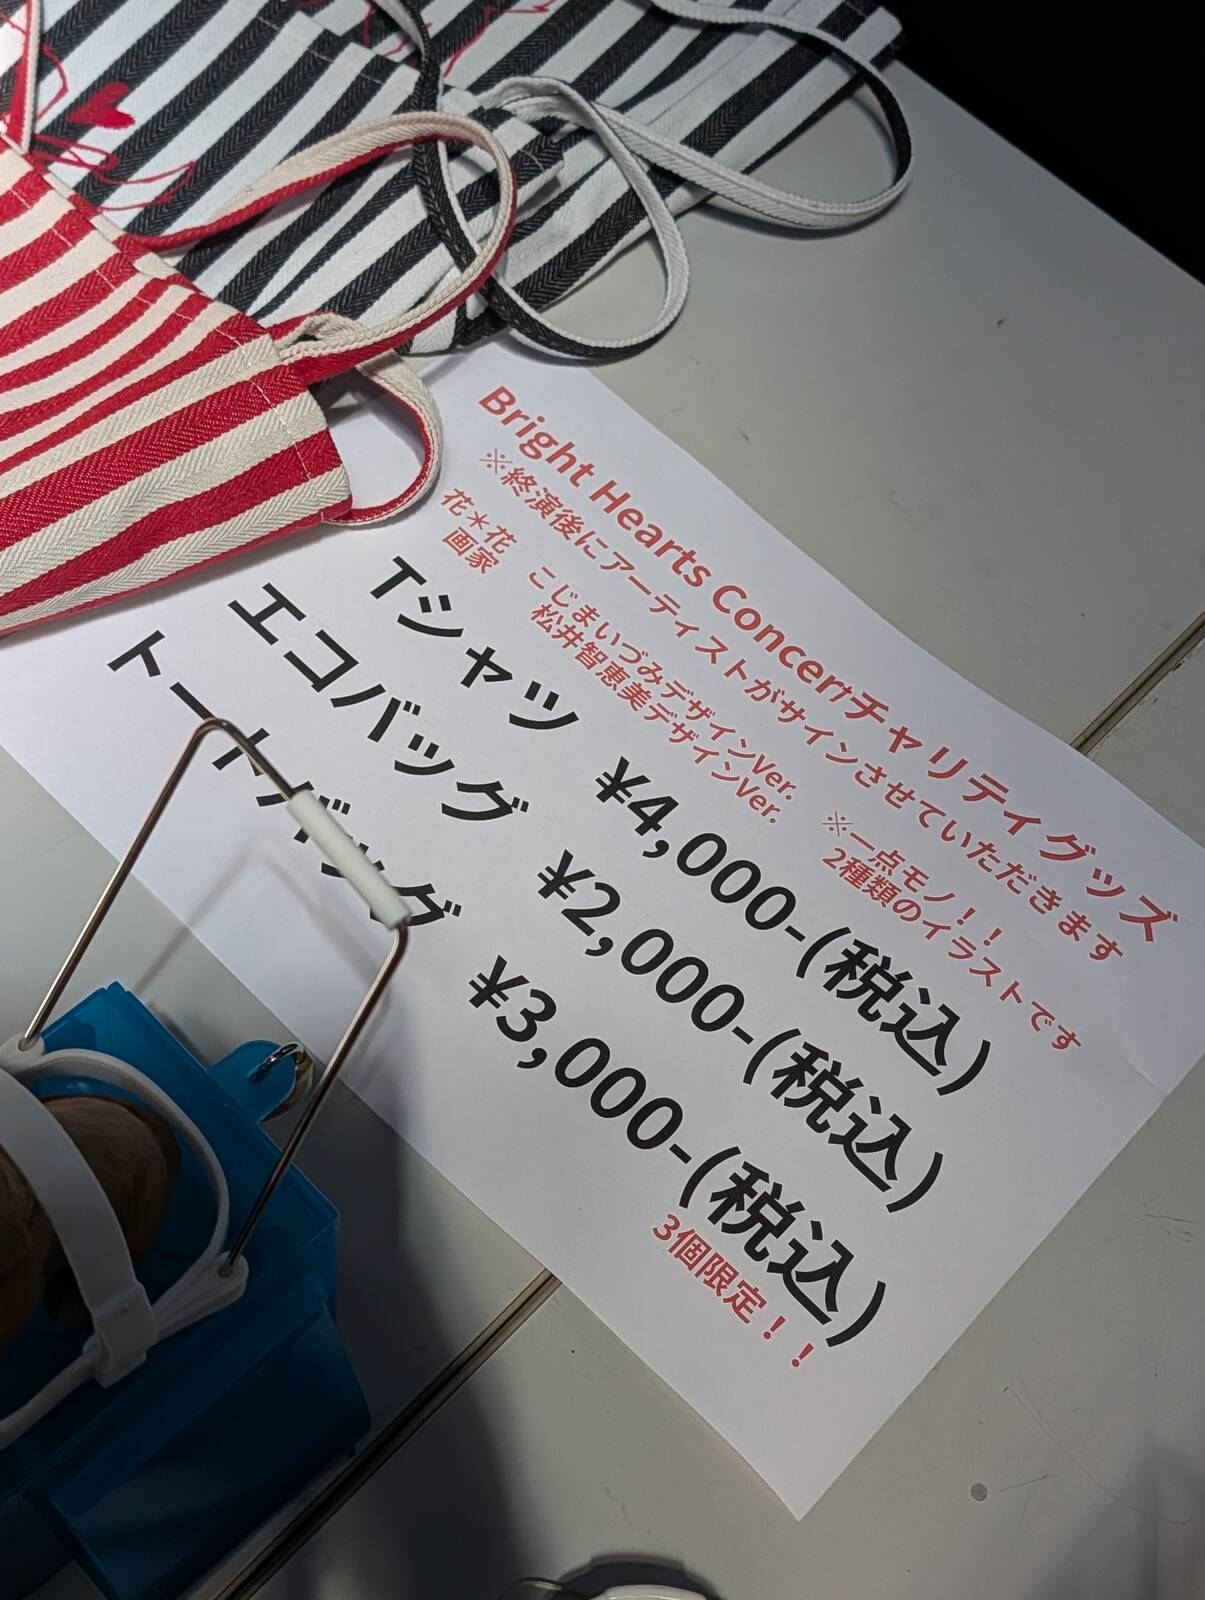 Bright Hearts Concertチャリティグッズ
※終演後にアーティストがサインさせていただきます
花＊花　こじまいづみデザインVer.　※一点モノ！！
画家　松井智恵美デザインVer.　2種類のイラストです
Tシャツ　¥4,000-(税込)
エコバッグ　¥2,000-(税込)
トートバッグ　¥3,000-(税込)
3個限定！！